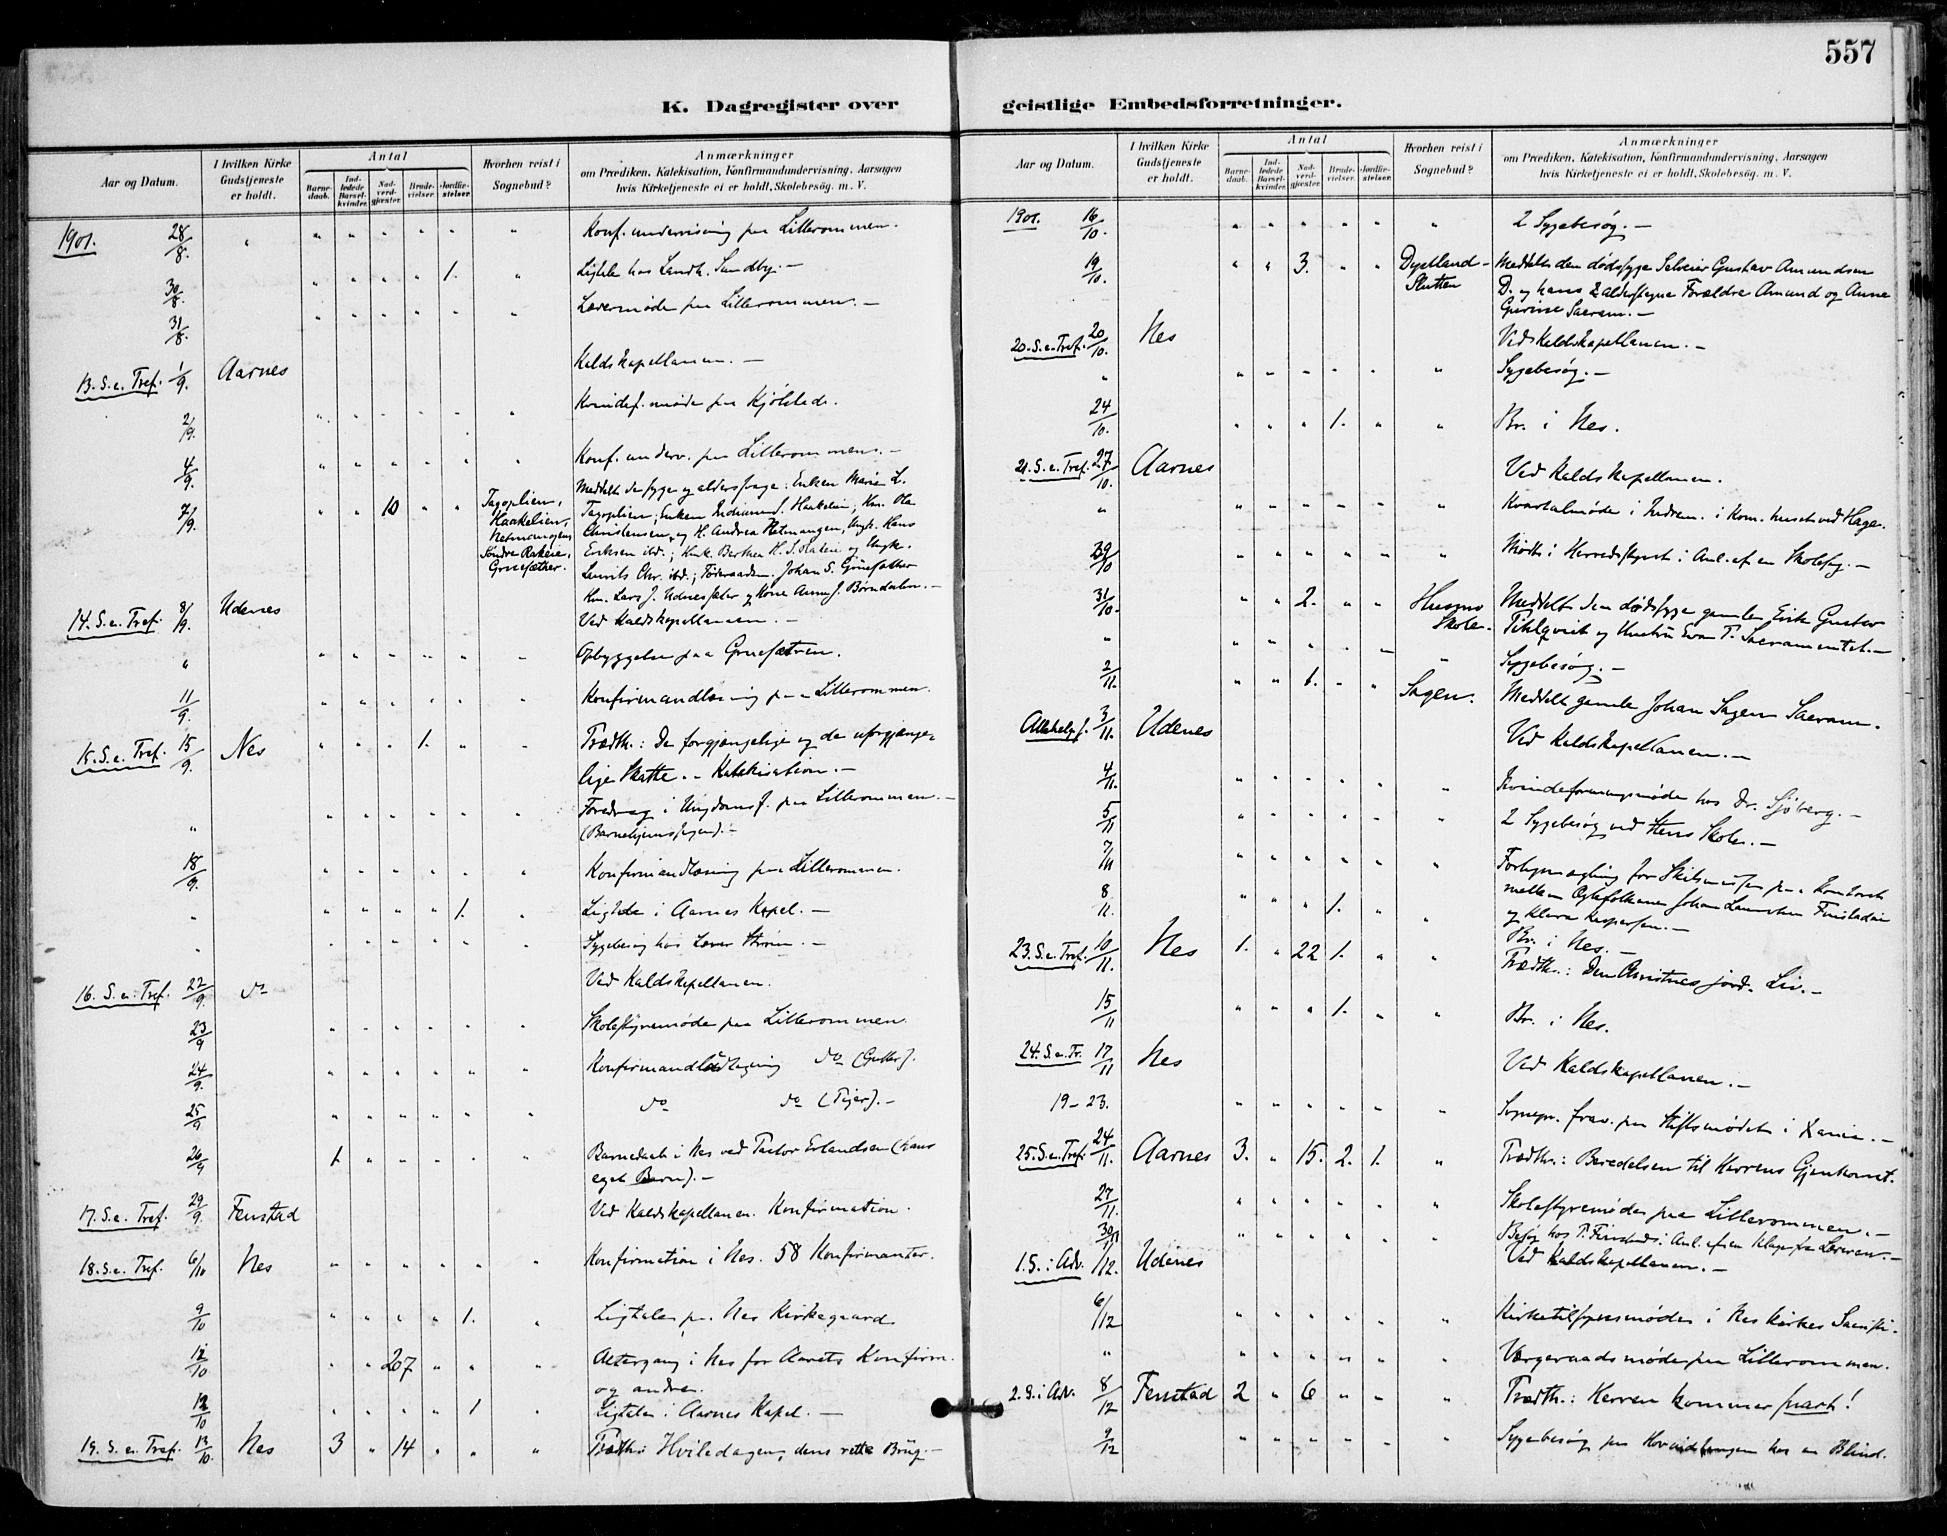 557
K. Dagregister over geistlige Embedsforretninger.
Aar og Datum. I hvilken Kirke Gudstjeneste er holdt. Antal Barnedaab. Indledede Barselkvinder. Nadverdgjæster. Brudevielser. Jordfæstelser. Hvorhen reist i Sognebud? Anmærkninger om Prædiken, Katekisation, Konfirmandundervisning, Aarsagen hvis Kirketjeneste ei er holdt, Skolebesøg. m. V.
1901. 28/8. " " " " " " " Konf. undervisning paa Lillerommen.
30/8. " " " " 1. " Ligtale hos Landh. Sundby. —
31/8. " " " " " " Læremøde paa Lillerommen. —
13. S. e. Tref. 1/9. Aarnes Kaldskapellanen. —
2/9. " " " " " " Kvindef. møde paa Kjölstad.
4/9. " " " " " " Konf. underv. paa Lillerommen. —
7/9. " " 10 " " Tagoplien, Haakelien, Søndre Rakeie, Gruesæther. Meddelt de syge og aldersvage: Enken Marie L.
Tagoplien; Enken J. Haakelien; Km. Ola
Christensen og H. Andrea Ungk. Hans
Eriksen ibd.; Berthea H. S. og Ungk.
Laurits Chr. ibd.; Johan S. Gruesæther
Km. Lars J. og Kone Anne J. —
14. S. e. Tref. 8/9. Udenes Ved Kaldskapellanen. —
" " " " " " " Opbyggelse paa Gruesætren.
11/9. " " " " " " Konfirmandlæsning paa Lillerommen.
15. S. e. Tref. 15/9. Nes " " " 1. " " Prædth.: De forgjængelige og de uforgjænge-
lige Skatte. — Katekisation. —
" " " " " " " Foredrag i Ungdomsf. paa Lillerommen. —
(Barnehjemssagen). —
18/9. " " " " " " Konfirmandlæsning paa Lillerommen.
" " " " " 1. " Ligtale i Aarnes Kapel. —
" " " " " " " Sygebesøg hos Lærer Strøm. —
16. S. e. Tref. 22/9. do Ved Kaldskapellanen.
23/9 " " " " " " Skolestyremøde paa Lillerommen.
24/9. " " " " " " do (Gutter).
25/9 " " " " " " do do (Piger). —
26/9 1. " " " " " Barnedaab i Nes ved Pastor Erlandsen (hans
eget Barn). —
17. S. e. Tref. 29/9. Fenstad Ved Kaldskapellanen. Konfirmation.
18. S. e. Tref. 6/10 Nes " " " " " " Konfirmation i Nes. 58 Konfirmanter.
9/10 " " " " 1. " Ligtale paa Nes Kirkegaard
12/10 " " 207 " " " Altergang i Nes for Aarets Konfirm.
og andre.
12/10 " " " " 1 " Ligtale i Aarnes Kapel. —
19. S. e. Tref. 13/10. Nes 3 " 14 " " " Prædth: Hviledagen, dens rette Brug. —
Aar og Datum. I hvilken Kirke Gudstjeneste er holdt. Antal Barnedaab. Indledede Barselkvinder. Nadverdgjæster. Brudevielser. Jordfæstelser. Hvorhen reist i Sognebud? Anmærkninger om Prædiken, Katekisation, Konfirmandundervisning, Aarsagen hvis Kirketjeneste ei er holdt, Skolebesøg. m. V.
1901. 16/10. " " " " " " 2 Sygebesøg. —
19/10. " " 3. " " Dystland-Slutten Meddelt den dødssyge Gustav Amundsen
D. og hans 2 alderstegne Forældre Amund og Anne
Gurine Sacram. —
20. S. e. Tref. 20/10. Nes Ved Kaldskapellanen. —
" " " " " " " Sygebesøg. —
24/10. " " " 1. " " Br. i Nes.
21. S. e. Tref. 27/10. Aarnes Ved Kaldskapellanen.
" " " " " " " Kvartalmøde i Indrem. i Kom. huset ved Haga.
29/10 " " " " " " Møtte i Herredsstyret i Anl. af en Skolesag. —
31/10. " " 2. " " Skole. Meddelt den dødssyge gamle Erik Gustav
Pihlqvist og Hustru Eva P. Sacramentet. —
" " " " " " " Sygebesøg. —
2/11. " " 1. " " Sagen. Meddelt gamle Johan Sagen Sacram.
Allehelg f. 3/11. Udenes Ved Kaldskapellanen. —
4/11. " " " " " " Kvindeforeningsmøde hos Dr. Sjöberg. —
5/11 " " " " " " 2 Sygebesøg ved Stens Skole. —
7/11 " " " " " " for Skilsmisse paa Kontoret
mellem Ægtefolkene Johan
og Klara Kaspersen. —
8/11. " " " 1. " " Br. i Nes. —
23. S. e. Tref. 10/11. Nes 1. " 22 1. " " Prædth.: Den Christnes jord. Liv. —
15/11 " " " 1. " " Br. i Nes.
24. S. e. Tr. 17/11 Nes Ved Kaldskapellanen. —
19 - 23. " " " " " " Sognepr. frav. paa Stiftsmødet i Xania. —
25. S. e. Tref. 24/11. Aarnes 3. " 15. 2. 1. " Prædth.: Beredelsen til Herrens Gjenkomst.
27/11. " " " " " " Skolestyremøde paa Lillerommen. —
30/11 " " " " " " Besøg hos P. i Anl. af en Klage fra Læreren. —
1. S. i Adv. 1/12. Udenes Ved Kaldskapellanen. —
6/12 " " " " " " Kirketilsynsmøde i Nes Kirkes Sacristi.
" " " " " " " Værgeraadsmøde paa Lillerommen.
2. S. i Adv. 8/12 Fenstad 2 " 6 " " " Prædth.: Herren kommer snart!
9/12 " " " " " " Sygebesøg paa hos en Blind.